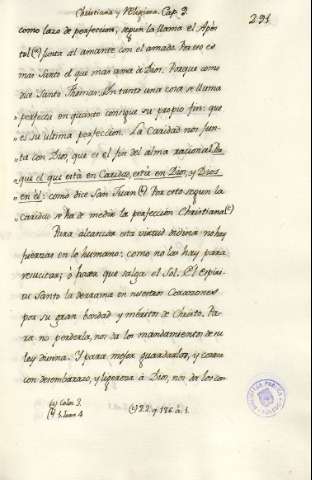 Christiana y Religiosa. Cap. 3.
291
como lazo de perfeccion, segun la llama el Apos-
tol (a) junta al amante con el amado. Por eso es
mas Santo el que mas ama de Dios. Porque como
dice Santo Thomas: En tanto una cosa se llama
perfecta en quanto consigue su propio fin: que
es su ultima perfeccion. La Caridad nos jun-
ta con Dios, que es el fin del alma racional. Por
que el que está en Caridad, está en Dios, y Dios
en él: como dice San Juan (b) Por esto segun la
caridad se ha de medir la perfeccion Christiana (c)
Para alcanzar esta virtud divina no hay
fuerzas en lo humano: como no las hay para
resucitar, ò para que salga el Sol. El Espiri-
tu Santo la derrama en nuestros Corazones
por su gran bondad y meritos de Christo. Pa-
ra no perderla, nos da los mandamientos de su
ley divina. Y para mejor guardarlos, y correr
con desembarazo, y ligereza à Dios, nos dà los con-
(a) Colos. 3.
(b) 1. Joan. 4
(c) 2.2. q. 184 à 1.